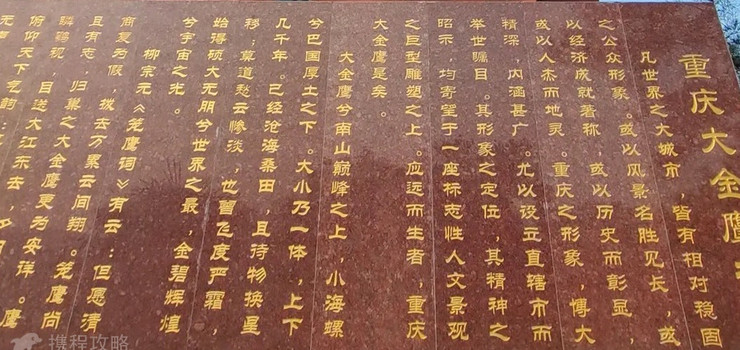 重庆大金鹰
凡世界之大城市，皆有相对稳固
之公众形象。或以风景名胜见长，或
以经济成就著称，或以历史而彰显，
或以人杰而地灵。重庆之形象，博大
精深，内涵甚广。尤以设立直辖市而
举世瞩目。其形象之定位，其精神之
昭示，均寄望于一座标志性人文景观
之巨型雕塑之上。应运而生者，重庆
大金鹰是矣。
大金鹰兮南山巅峰之上，小海螺
兮巴国厚土之下。大小乃一体，上下
几千年。已经沧海桑田，且待物换星
移；莫道愁云惨淡，也曾飞度严霜，
始得硕大无朋兮世界之最，金碧辉煌
兮宇宙之光。
柳宗元《笼鹰词》有云：但愿清
商复为假，拔去万累云间翔。笼鹰尚
且有志，归巢之大金鹰更为安详。鹰
俯仰天下
目送大江东去，
携程攻略